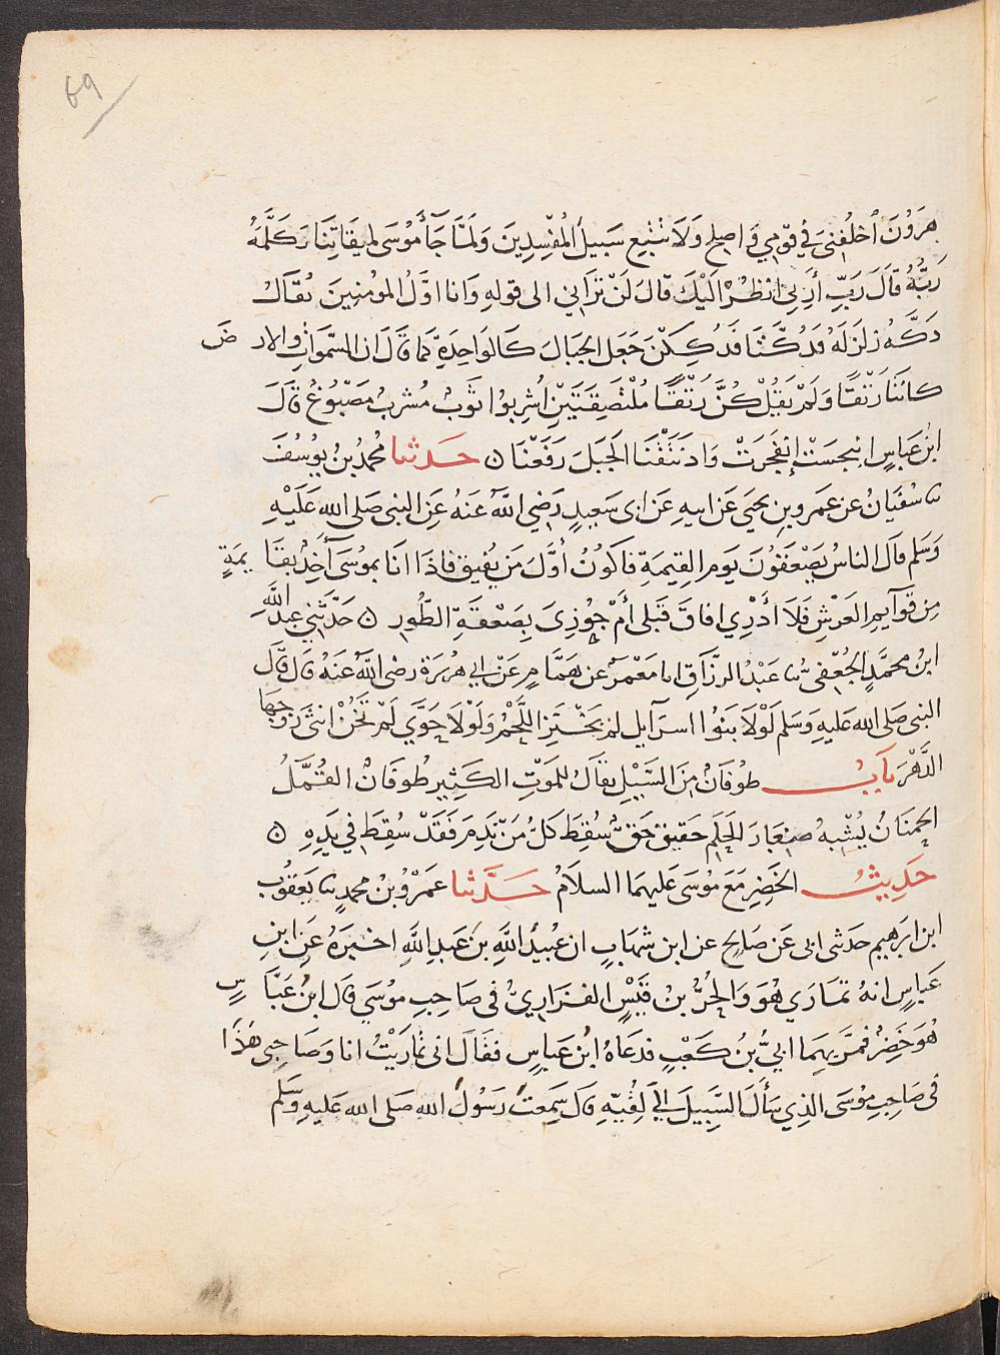 69
هرون اخلفني في قومي واصلح ولا تتبع سبيل المفسدين ولما جآء موسى لميقاتنا وكلمه
ربه قال رب أرني انظر اليك قال لن تراني الى قوله وانا اول المومنين يقال
دكه زلزله فدكتا فدككن جعل الجبال كالواحدة كما قال ان السموات والارض
كانتا رتقا ولم يقل كن رتقا ملتصقتين اشربوا ثوب مشرب مصبوغ قال
ابن عباس انبجست إنفجرت واذ نتقنا الجبل رفعنا ن حدثنا محمد بن يوسف
ثنا سفيان عن عمرو بن يحيى عن ابيه عن ابى سعيد رضي الله عنه عن النبى صلى الله عليه
وسلم قال الناس يصعقون يوم القيمة فاكون أول من يفيق فاذا انا بموسى آخذ بقايمة
من قوآيم العرش فلا أدري افاق قبلى أم جوزى بصعقة الطور ن حدثني عبد الله
ابن محمد الجعفى ثنا عبد الرزاق انا معمر عن همام عن ابي هريرة رضى الله عنه قال قال
النبى صلى الله عليه وسلم لولا بنوا اسرآيل لم يخنز اللحم ولولا حوي لم تخن انثى زوجها
الدهر باب طوفان من السيل يقال للموت الكثير طوفان القمل
الحمنان يشبه صغار الحلم حقيق حق سقط كل من ندم فقد سقط في يده ن
حديث الخضر مع موسى عليهما السلام حدثنا عمرو بن محمد ثنا يعقوب
ابن ابرهيم حدثى ابى عن صالح عن ابن شهاب ان عبيد الله بن عبد الله اخبره عن ابن
عباس انه تمارى هو والحر بن قيس الفزاري فى صاحب موسى قال ابن عباس
هو خضر فمر بهما ابي بن كعب فدعاه ابن عباس فقال انى تماريت انا وصاحبى هذا
فى صاحب موسى الذي سأل السبيل الي لقيه قال سمعت رسول الله صلى الله عليه وسلم